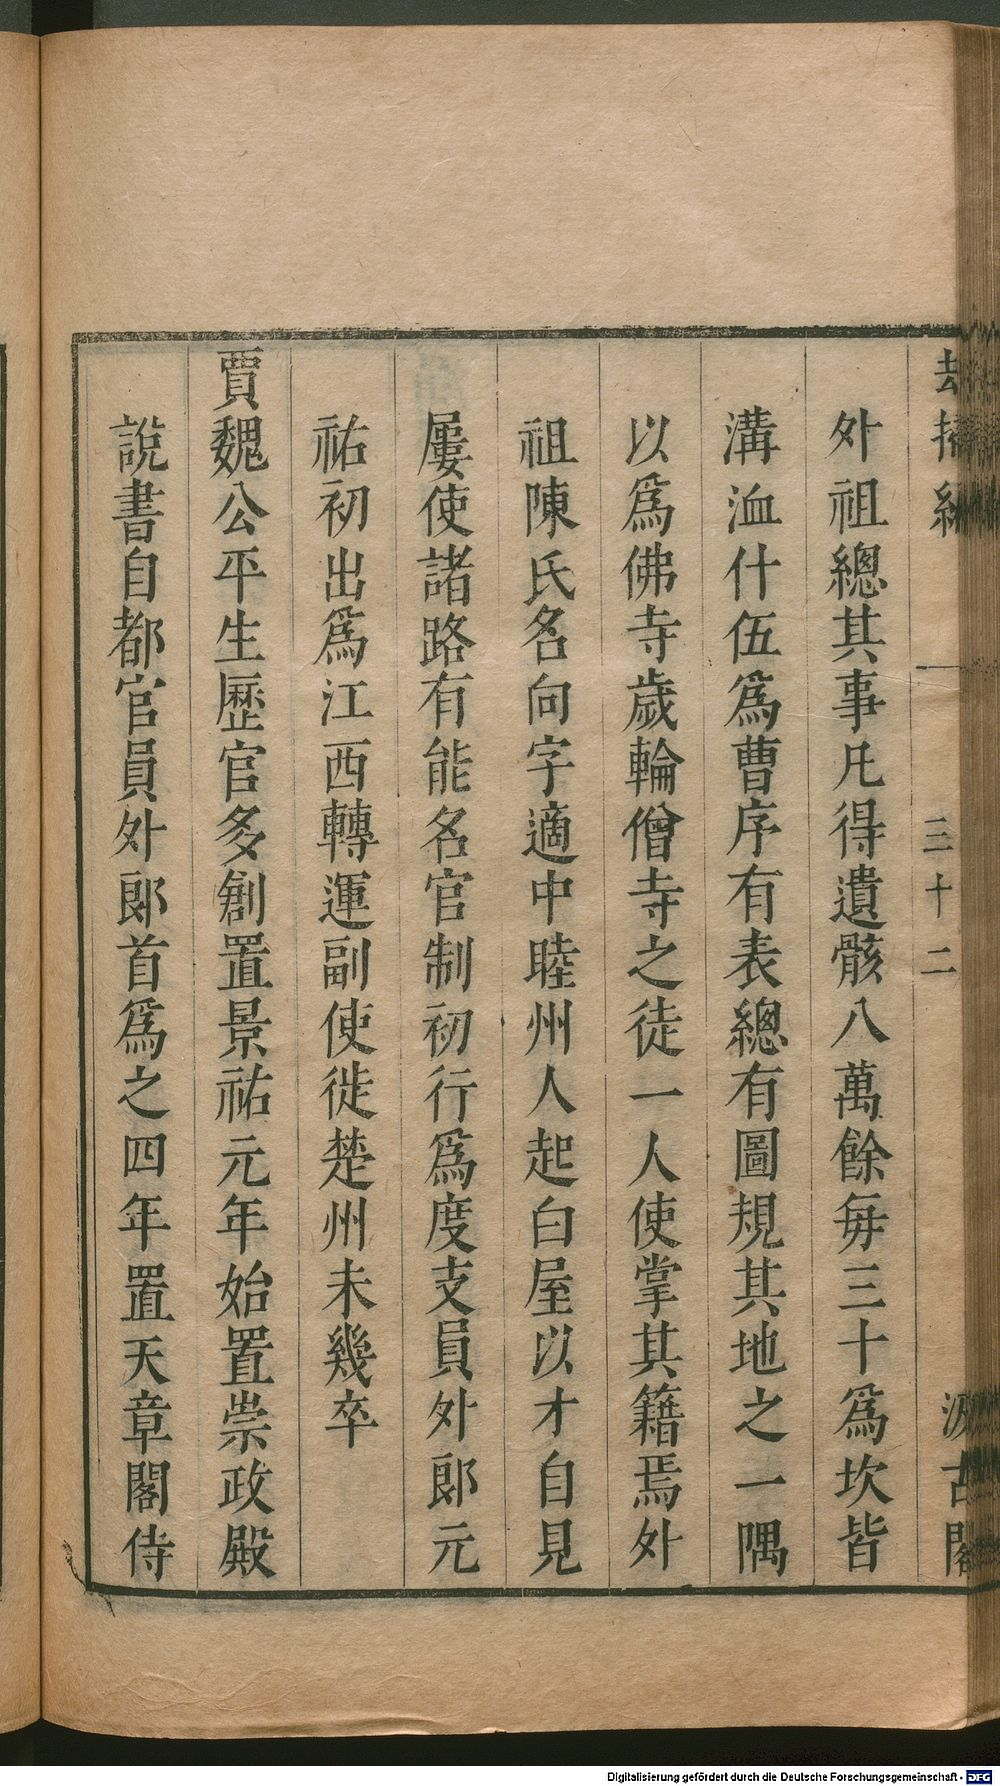 三十二
外祖總其事凡得遺骸八萬餘每三十爲坎皆
溝洫什伍爲曹序有表總有圖規其地之一隅
以爲佛寺歲輪僧寺之徒一人使掌其籍焉外
祖陳氏名向字適中睦州人起白屋以才自見
屢使諸路有能名官制初行爲度支員外郎元
祐初出爲江西轉運副使徙楚州未幾卒
賈魏公平生歷官多創置景祐元年始置崇政殿
說書自都官員外郎首爲之四年置天章閣侍
Digitalisierung gefördert durch die Deutsche Forschungsgemeinschaft - DFG